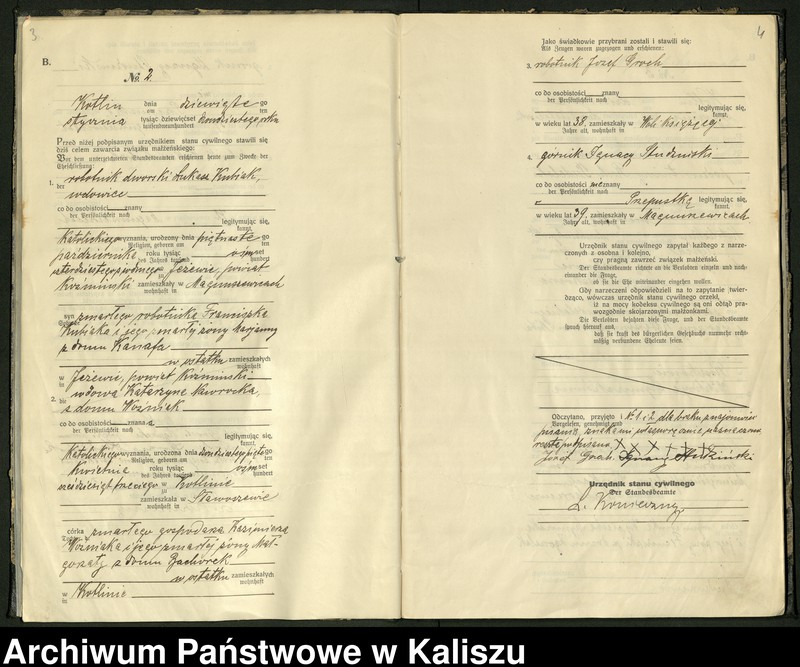 3.
B.
№ 2.
Kotlin dnia dziewiąte go
am ten
stycznia tysiąc dziewięćset
tausendneunhundert
Przed niżej podpisanym urzędnikiem stanu cywilnego stawili się
dziś celem zawarcia związku małżeńskiego:
Vor dem unterzeichneten Standesbeamten erschienen heute zum Zweck der
Eheschließung:
1. robotnik dworski Łukasz Kubiak,
der
wdowiec
co do osobistości znany
der Persönlichkeit nach
legitymując się,
kannt,
Katolickiego wyznania, urodzony dnia piętnaste go
Religion, geboren am ten
października roku tysiąc ośmset
des Jahres tausend hundert
siódmego w Jeżewie, powiat
zu
Koźmiński zamieszkały w Magnuszewicach
wohnhaft in
syn zmarłego robotnika Franciszka
Kubiaka i jego zmarłej żony Maryanny
z domu Kanafa
w ostatku zamieszkałych
wohnhaft
w Jeżewie, powiat Koźmiński
in
2. wdowa Katarzyna Nawrocka,
die
z domu Woźniak
co do osobistości znana
der Persönlichkeit nach
legitymując się,
kannt,
Katolickiego wyznania, urodzona dnia dwudziestego piątego
Religion, geboren am ten
Kwietnia roku tysiąc ośmset
des Jahres tausend hundert
sześćdziesiąt trzeciego w Kotlinie
zu
zamieszkała w Sławoszewie
wohnhaft in
córka zmarłego gospodarza Kazimierza
Tochter
Woźniaka i jego zmarłej żony Mał-
gorzaty z domu Bachorek
w ostatku zamieszkałych
wohnhaft
w Kotlinie
in
4
Jako świadkowie przybrani zostali i stawili się:
Als Zeugen waren zugezogen und erschienen:
3. robotnik Józef Groch
co do osobistości znany
der Persönlichkeit nach
legitymując się,
kannt,
w wieku lat 38, zamieszkały w Woli Książęcej
Jahre alt, wohnhaft in
4. górnik Ignacy
co do osobistości nieznany
der Persönlichkeit nach
Przepustką legitymując się,
kannt,
w wieku lat 39, zamieszkały w Magnuszewicach
Jahre alt, wohnhaft in
Urzędnik stanu cywilnego zapytał każdego z narze-
czonych z osobna i kolejno,
czy pragną zawrzeć związek małżeński.
Der Standesbeamte richtete an die Verlobten einzeln und nach-
einander die Frage,
ob sie die Ehe miteinander eingehen wollen.
Gdy narzeczeni odpowiedzieli na to zapytanie twier-
dząco, wówczas urzędnik stanu cywilnego orzekł,
iż na mocy kodeksu cywilnego są oni odtąd pra-
wozgodnie skojarzonymi małżonkami.
Die Verlobten bejahten diese Frage, und der Standesbeamte
sprach hierauf aus,
daß sie kraft des bürgerlichen Gesetzbuchs nunmehr recht-
mäßig verbundene Eheleute seien.
Odczytano, przyjęto i Nr. 1 i 2 dla braku znajomości
Vorgelesen, genehmigt und
pisania znakami własnoręcznie naznaczono
reszta podpisano X X X X X X
Józef Groch. Ignacy
Urzędnik stanu cywilnego
Der Standesbeamte
L. Konieczny
Archiwum Państwowe w Kaliszu